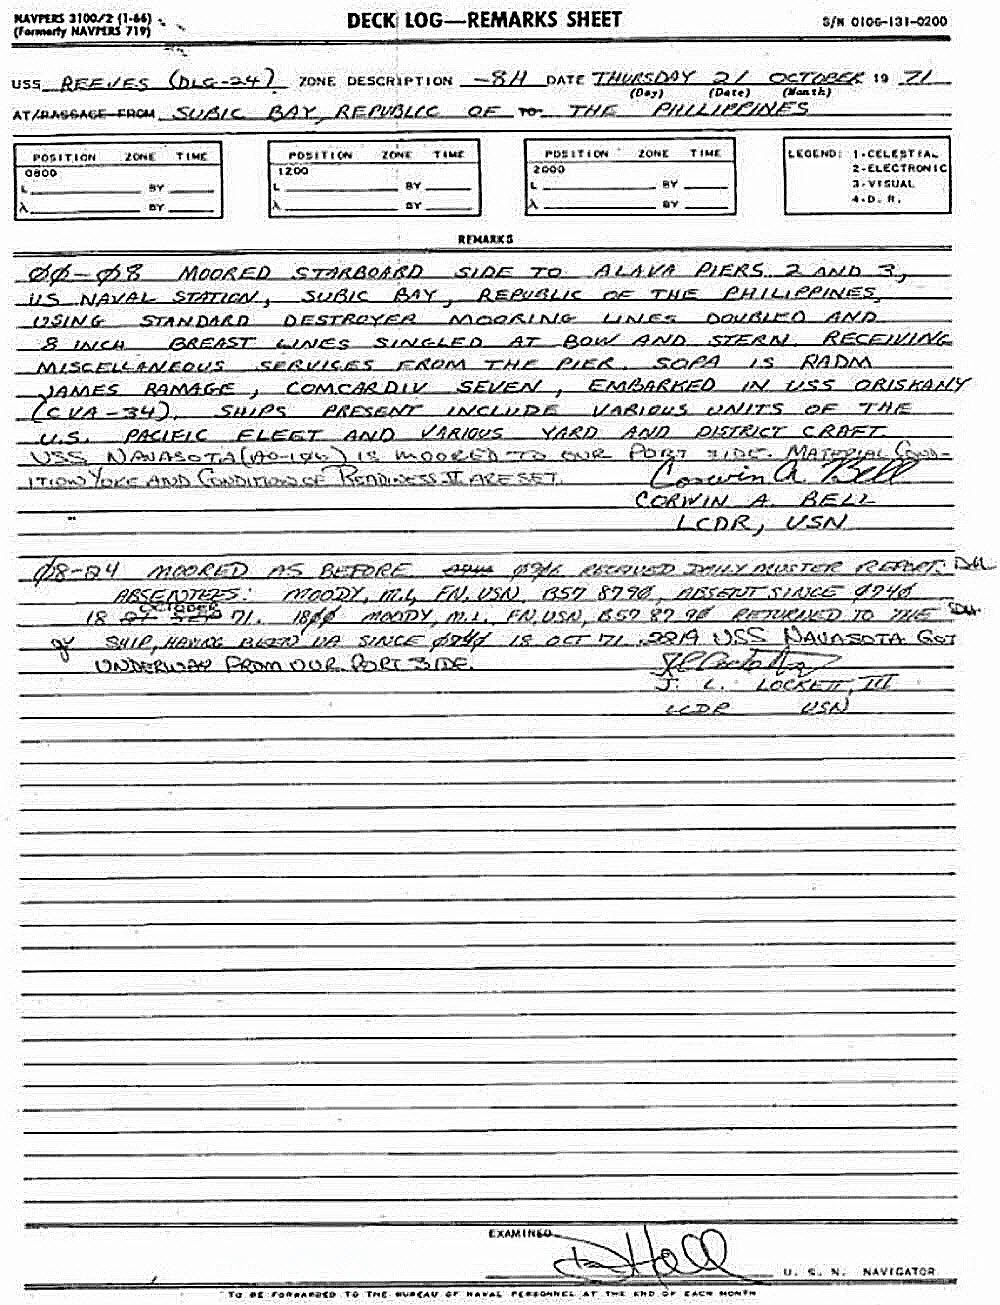 NAVPERS 3100/2 (1-66)
(Formerly NAVPERS 719)
DECK LOG—REMARKS SHEET
S/N 0106-131-0200
USS REEVES (DLG-24) ZONE DESCRIPTION -8H DATE THURSDAY 21 OCTOBER 19 71
(Day) (Date) (Month)
AT/PASSAGE FROM SUBIC BAY, REPUBLIC OF TO THE PHILIPPINES
POSITION ZONE TIME
0800
L BY
λ BY
POSITION ZONE TIME
1200
L BY
λ BY
POSITION ZONE TIME
2000
L BY
λ BY
LEGEND: 1-CELESTIAL
2-ELECTRONIC
3-VISUAL
4-D. R.
REMARKS
00-08 MOORED STARBOARD SIDE TO ALAVA PIERS 2 AND 3,
US NAVAL STATION, SUBIC BAY, REPUBLIC OF THE PHILIPPINES,
USING STANDARD DESTROYER MOORING LINES DOUBLED AND
8 INCH BREAST LINES SINGLED AT BOW AND STERN. RECEIVING
MISCELLANEOUS SERVICES FROM THE PIER. SOPA IS RADM
JAMES RAMAGE, COMCARDIV SEVEN, EMBARKED IN USS ORISKANY
(CVA-34). SHIPS PRESENT INCLUDE VARIOUS UNITS OF THE
U.S. PACIFIC FLEET AND VARIOUS YARD AND DISTRICT CRAFT.
USS NAVASOTA (AO-106) IS MOORED TO OUR PORT SIDE. MATERIAL COND-
ITION YOKE AND CONDITION OF READINESS ARE SET.
Corwin A. Bell
CORWIN A. BELL
LCDR, USN
08-24 MOORED AS BEFORE RECEIVED DAILY MUSTER REPORT.
ABSENTEES: MOODY, M.L, FN, USN, B57 87 90, ABSENT SINCE 0740
18 OCTOBER 71. 1800 MOODY, M.L. FN, USN, B57 87 90 RETURNED TO THE
SHIP, HAVING BEEN UA SINCE 0740 18 OCT 71. 2219 USS NAVASOTA GOT
UNDERWAY FROM OUR PORT SIDE.
J. L. LOCKETT, III
LCDR USN
EXAMINED
U. S. N. NAVIGATOR
TO BE FORWARDED TO THE BUREAU OF NAVAL PERSONNEL AT THE END OF EACH MONTH